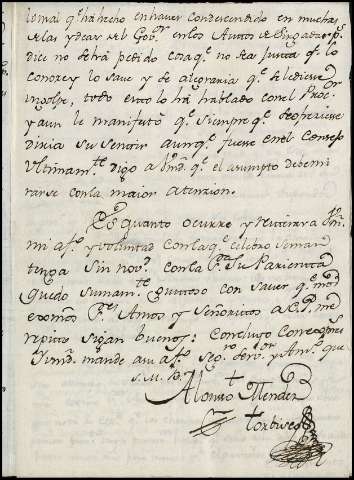 le mal q.e ha hecho en haver Condesendido en muchas
de las ydeas del Gov.or en los Auttos de
dice no se hà pedido cosa q.e no sea Justa q.e lo
Conoze y lo save y se alegraria q.e se le diese
un golpe, todo esto lo hà hablado con el Proc.or
y aun le manifestò q.e siempre q.e se ofreciese
diria su Sentir aunq.e fuese en el Consejo
Ultimam.te digo a Vmd. q.e el asumpto debe mi
rarse con la maior atenzion.
Es quanto ocurre y reitera à Vm.
mi af.to y voluntad con la q.e celebro
tenga sin nov.d con la S.ra su Parienta
quedo sumam.te gustoso con saver q.e
exxmos S.res Amos y Señoritos
repito sigan buenos: Concluyo con
Vmd. mande a su af.to seg.ro Serv.or y Am.o que
S. M. B.
Alonso Mendez
Tordesillas